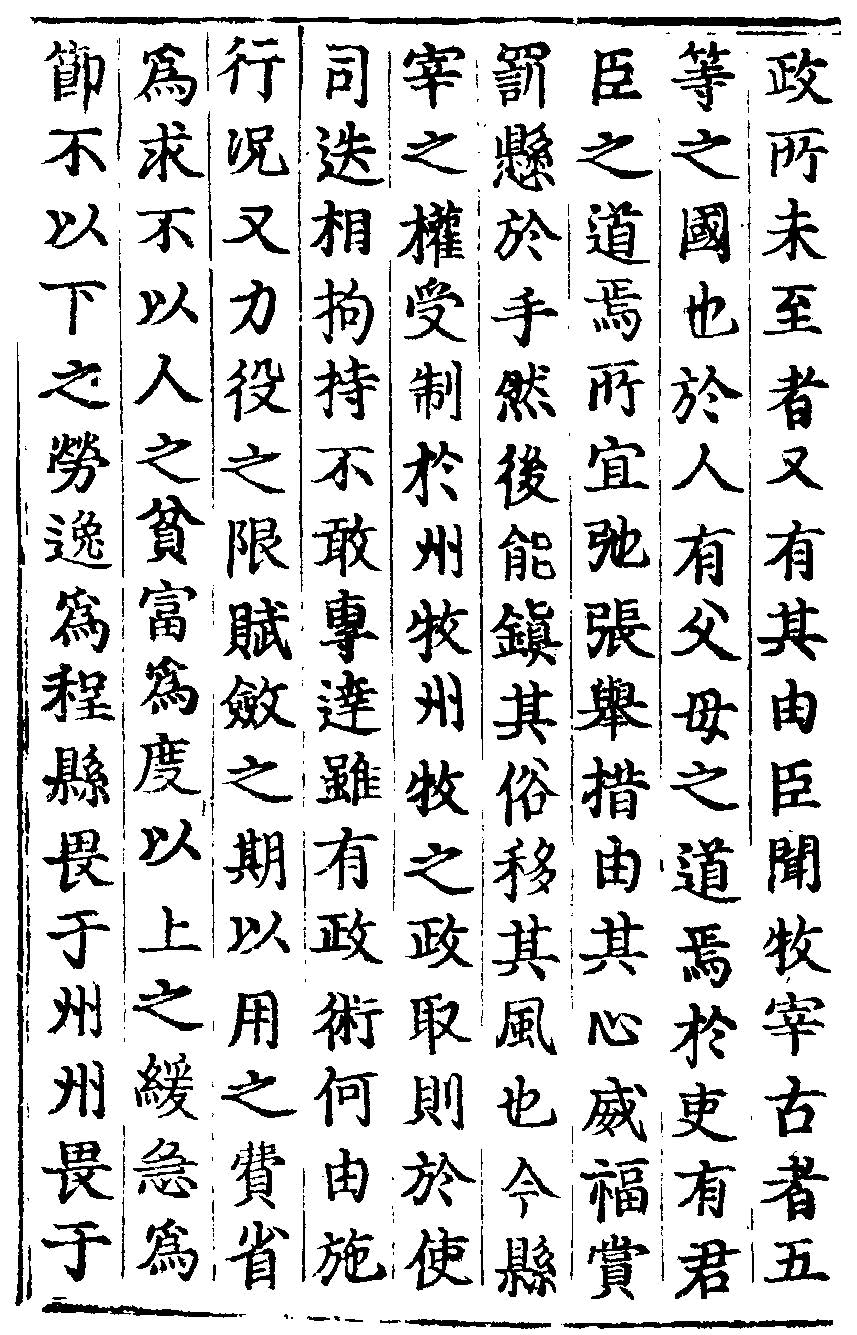 政所未至者又有其由臣聞牧宰古者五
等之國也於人有父母之道焉於吏有君
臣之道焉所宜弛張舉措由其心威福賞
罰懸於手然後能鎮其俗移其風也今縣
宰之權受制於州牧州牧之政取則於使
司迭相拘持不敢專達雖有政術何由施
行况又力役之限賦斂之期以用之費省
爲求不以人之貧富爲度以上之緩急爲
節不以下之勞逸爲程縣畏于州州畏于